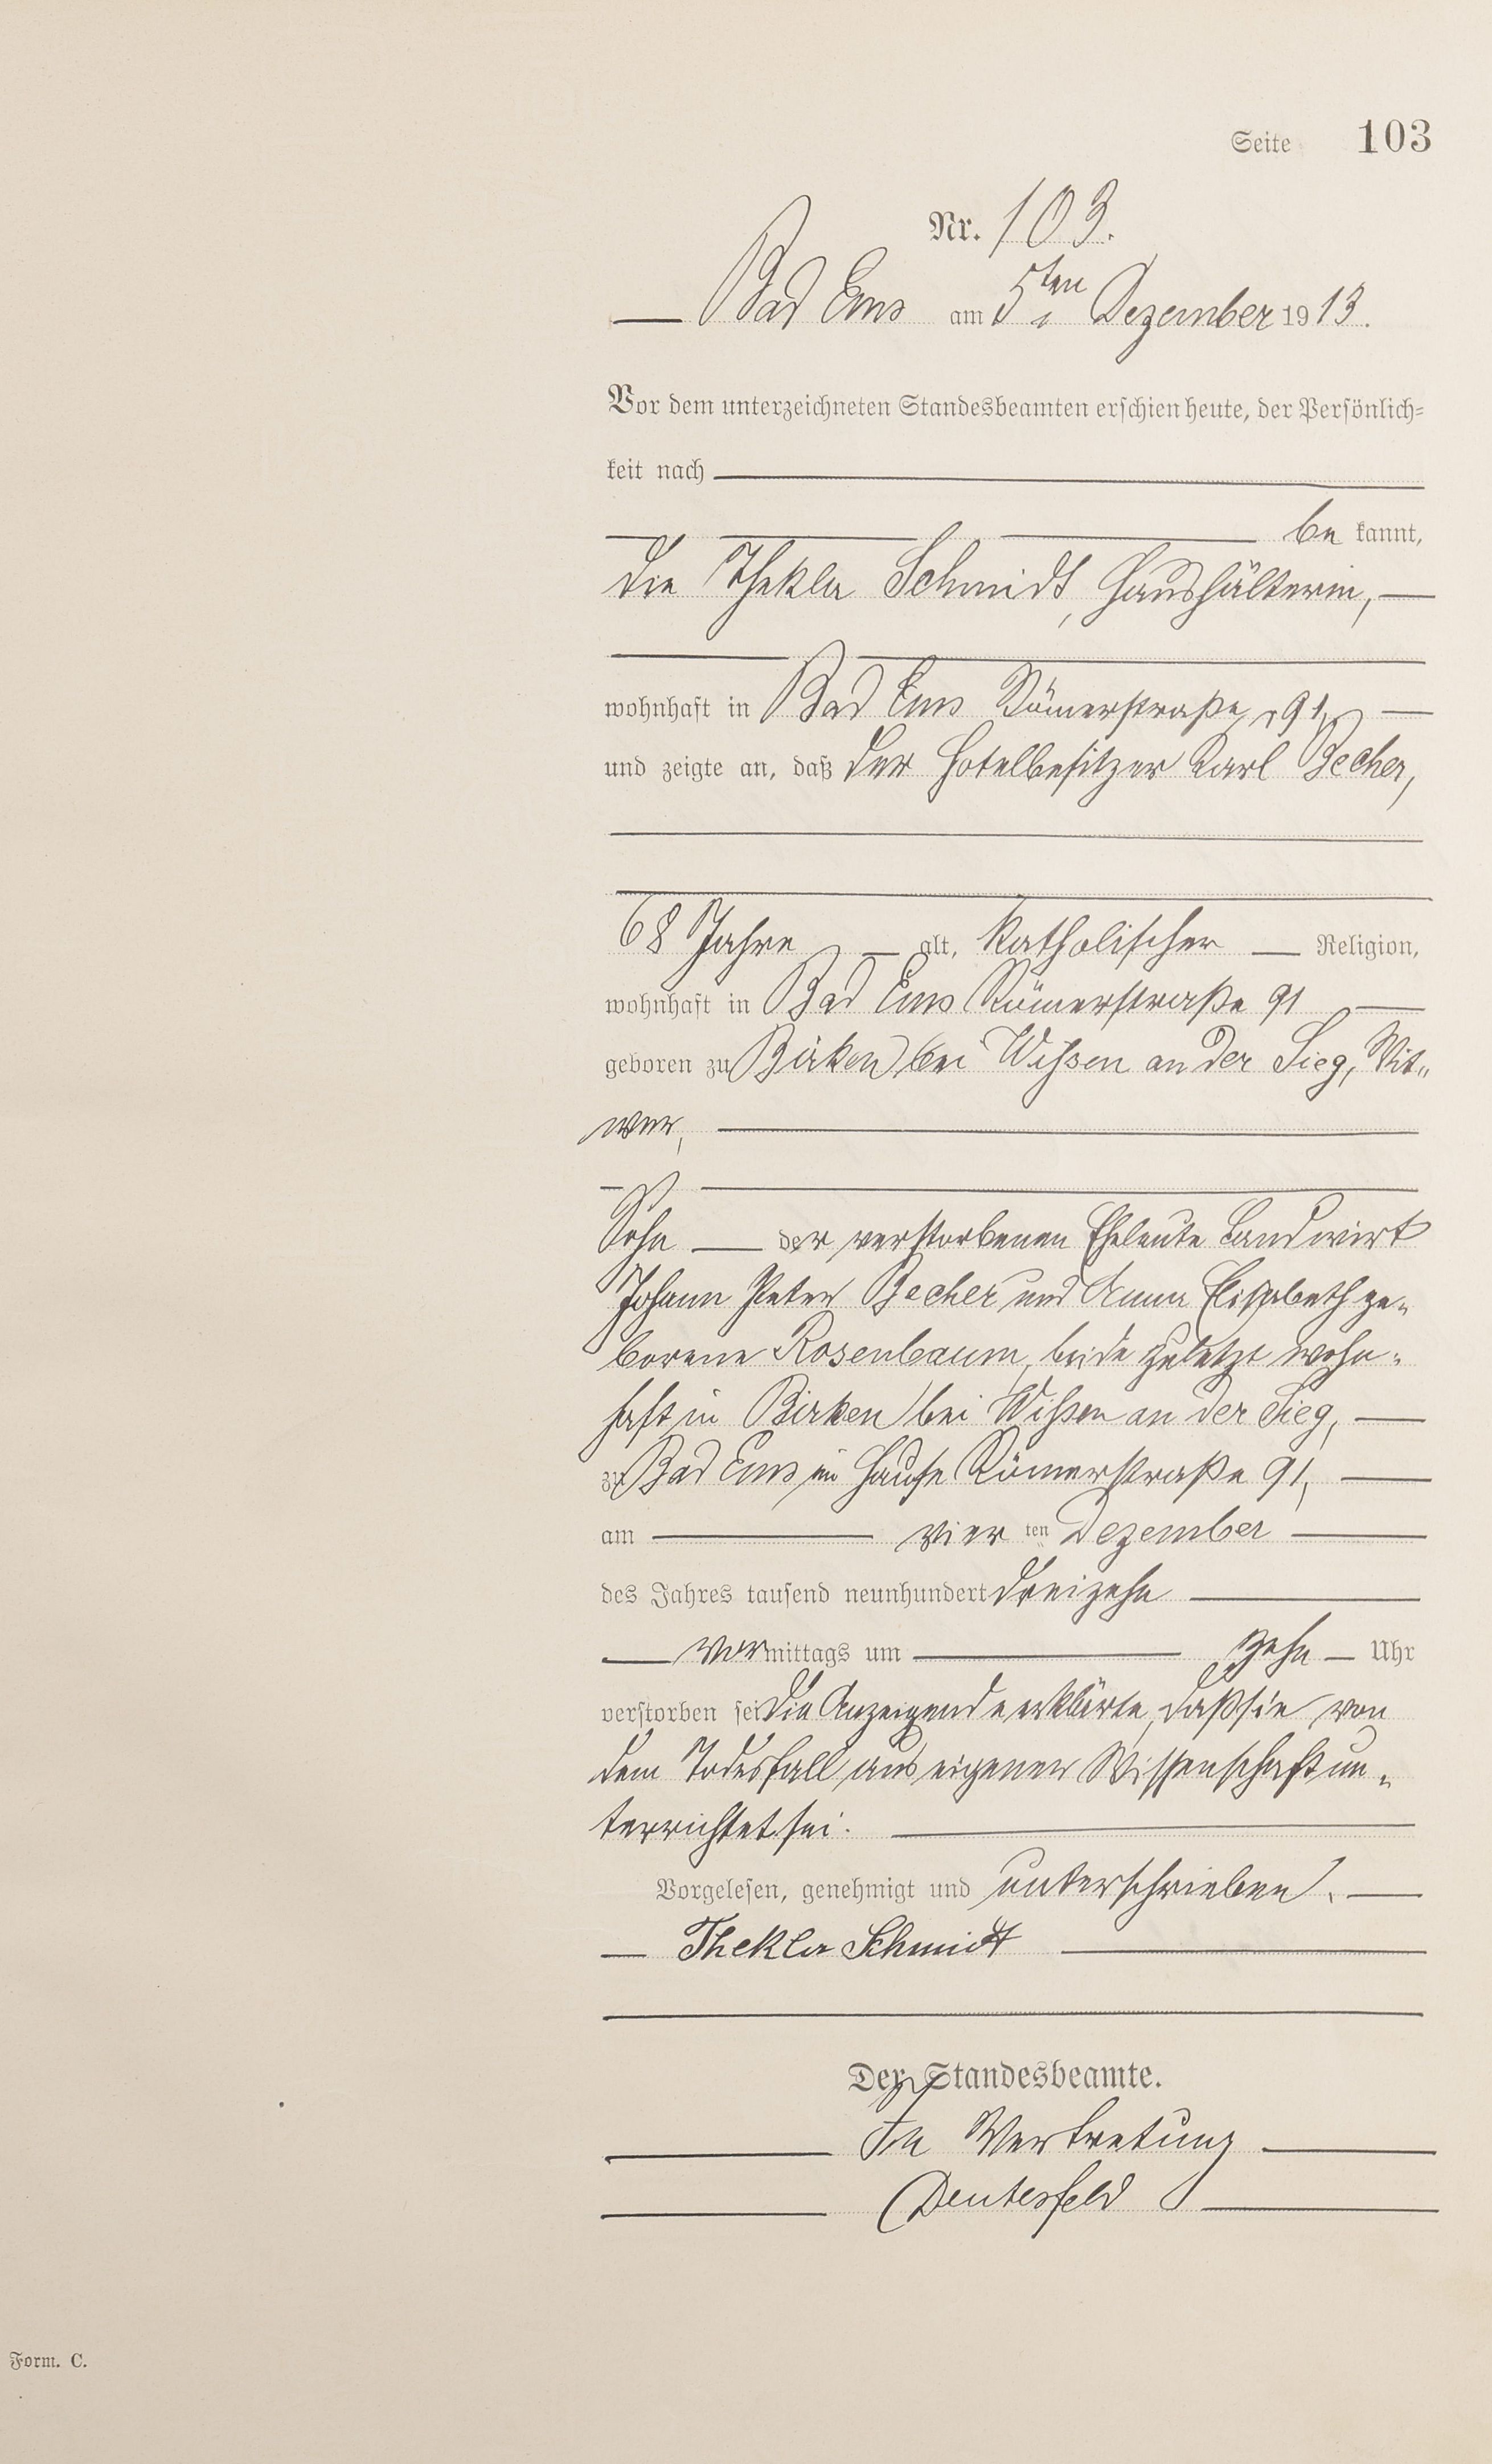 Seite 103
Nr. 103.
Bad Ems am 5ten Dezember 1913.
Vor dem unterzeichneten Standesbeamten erschien heute, der Persönlich=
keit nach
be kannt,
die Thekla Schmidt, Haushälterin,
wohnhaft in Bad Ems Römerstraße 91,
und zeigte an, daß der Hotelbesitzer Karl Becher,
68 Jahre alt, katholischer Religion,
wohnhaft in Bad Ems Römerstraße 91
geboren zu Birken bei Wissen an der Sieg, Wit„
wer,
Sohn der verstorbenen Eheleute Landwirt
Johann Peter Becher und Anna Elisabeth ge„
borene Rosenbaum, beide zuletzt wohn„
haft in Birken bei Wissen an der Sieg,
zu Bad Ems im Hause Römerstraße 91,
am vier ten Dezember
des Jahres tausend neunhundert dreizehn
vormittags um zehn Uhr
verstorben sei. Die Anzeigende erklärte, daß sie von
dem Todesfall aus eigener Wissenschaft un„
terrichtet sei.
Vorgelesen, genehmigt und unterschrieben.
Thekla Schmidt
Der Standesbeamte.
In Vertretung
Deutesfeld
Form. C.